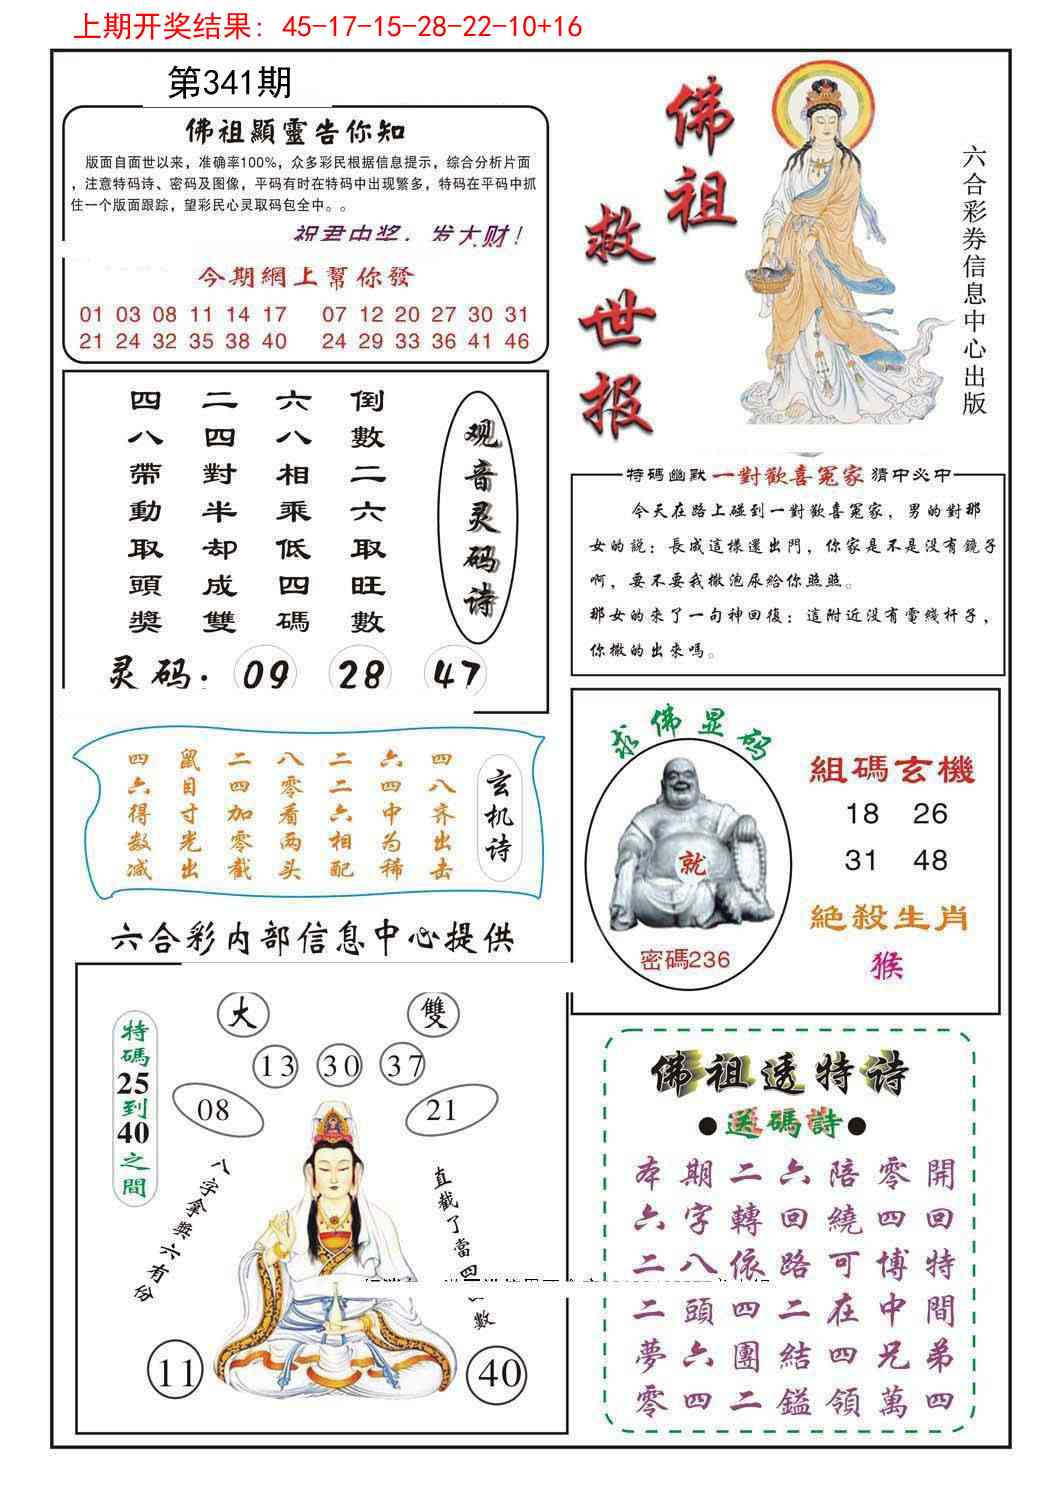 上期开奖结果：45-17-15-28-22-10+16
第341期
佛祖顯靈告你知
版面自面世以来，准确率100%，众多彩民根据信息提示，综合分析片面
，注意特码诗、密码及图像，平码有时在特码中出现繁多，特码在平码中抓
住一个版面跟踪，望彩民心灵取码包全中。。
祝君中奖，发大财！
今期網上幫你發
01 03 08 11 14 17 07 12 20 27 30 31
21 24 32 35 38 40 24 29 33 36 41 46
佛祖
救世报
六合彩券信息中心出版
观音灵码诗
倒數二六取旺數
六八相乘低四碼
二四對半却成雙
四八帶動取頭獎
灵码：09 28 47
特碼幽默一對歡喜冤家猜中必中
今天在路上碰到一對歡喜冤家，男的對那
女的說：長成這樣還出門，你家是不是没有鏡子
啊，要不要我撒泡尿給你照照。
那女的來了一句神回復：這附近没有電綫杆子，
你撒的出來嗎。
玄机诗
四八齐出击
六四中为稀
二二六相配
八零看两头
二四加零截
鼠目寸光出
四六得数减
求佛显码
就
密碼236
組碼玄機
18 26
31 48
絕殺生肖
猴
六合彩内部信息中心提供
大 雙
13 30 37
08 21
特碼25到40之間
八字拿獎六有份
直截了當四 數
11 40
佛祖透特诗
●送碼詩●
本期二六陪零開
六字轉回繞四回
二八依路可博特
二頭四二在中間
夢六團結四兄弟
零四二鎰領萬四